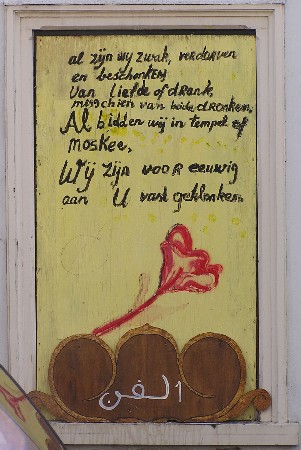 al zijn wy zwak, verdorven
en beschonken
Van liefde of drank,
misschien van beide dronken,
Al bidden wij in tempel of
moskee,
Wij zijn voor eeuwig
aan U vast geklonken
الفن